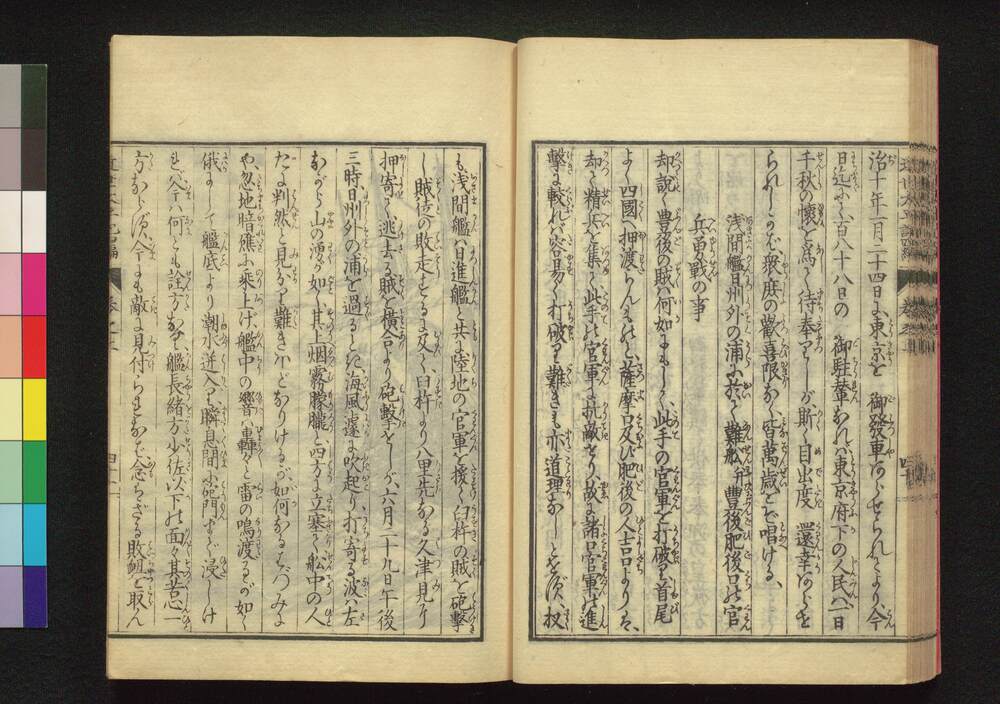 治十年一月二十四日に東京を 御發車あらせられしより今
日迄すべて百八十八日の 御駐輦なれバ東京府下の人民ハ一日
千秋の懷ひを為して待奉りしが斯く目出度 還幸あらせ
られしかバ衆庶の歡喜限なく皆萬歳をぞ唱ける
淺間艦日州外の浦に於て難船 并 豊後肥後口の官
兵勇戰の事
却説く豊後の賊ハ何如にもして此手の官軍を打破り首尾
よく四國へ押渡らんものと薩摩口及び肥後の人吉口よりも
却て精兵を集て此手の官軍に抗敵せり故に諸口官軍の進
撃に較れバ容易く打破り難きも亦道理なりとぞ 扨
も淺間艦ハ日進艦と共に陸地の官軍を援て臼杵の賊を砲擊
し賊徒の敗走するに及て臼杵より八里先なる久津見より
押寄て逃去る賊を横合より砲擊をしが六月二十九日午後
三時日州外の浦を過るとき海風遽に吹起り打寄る波ハ左
ながら山の湧が如く其上烟霧朦朧と四方に立塞て船中の人
だに判然と見分難きほどなりけるが如何なるはづみに
や忽地暗礁に乗上げ艦中の響轟々と雷の鳴渡るが如く
俄にして艦底より潮水迸入り瞬息間に砲門まで浸しけ
れバ今ハ何とも詮方なく艦長緒方少佐以下の面々其苦心一
方ならず今にも敵に見付られなバ念らざる敗衄を取ん